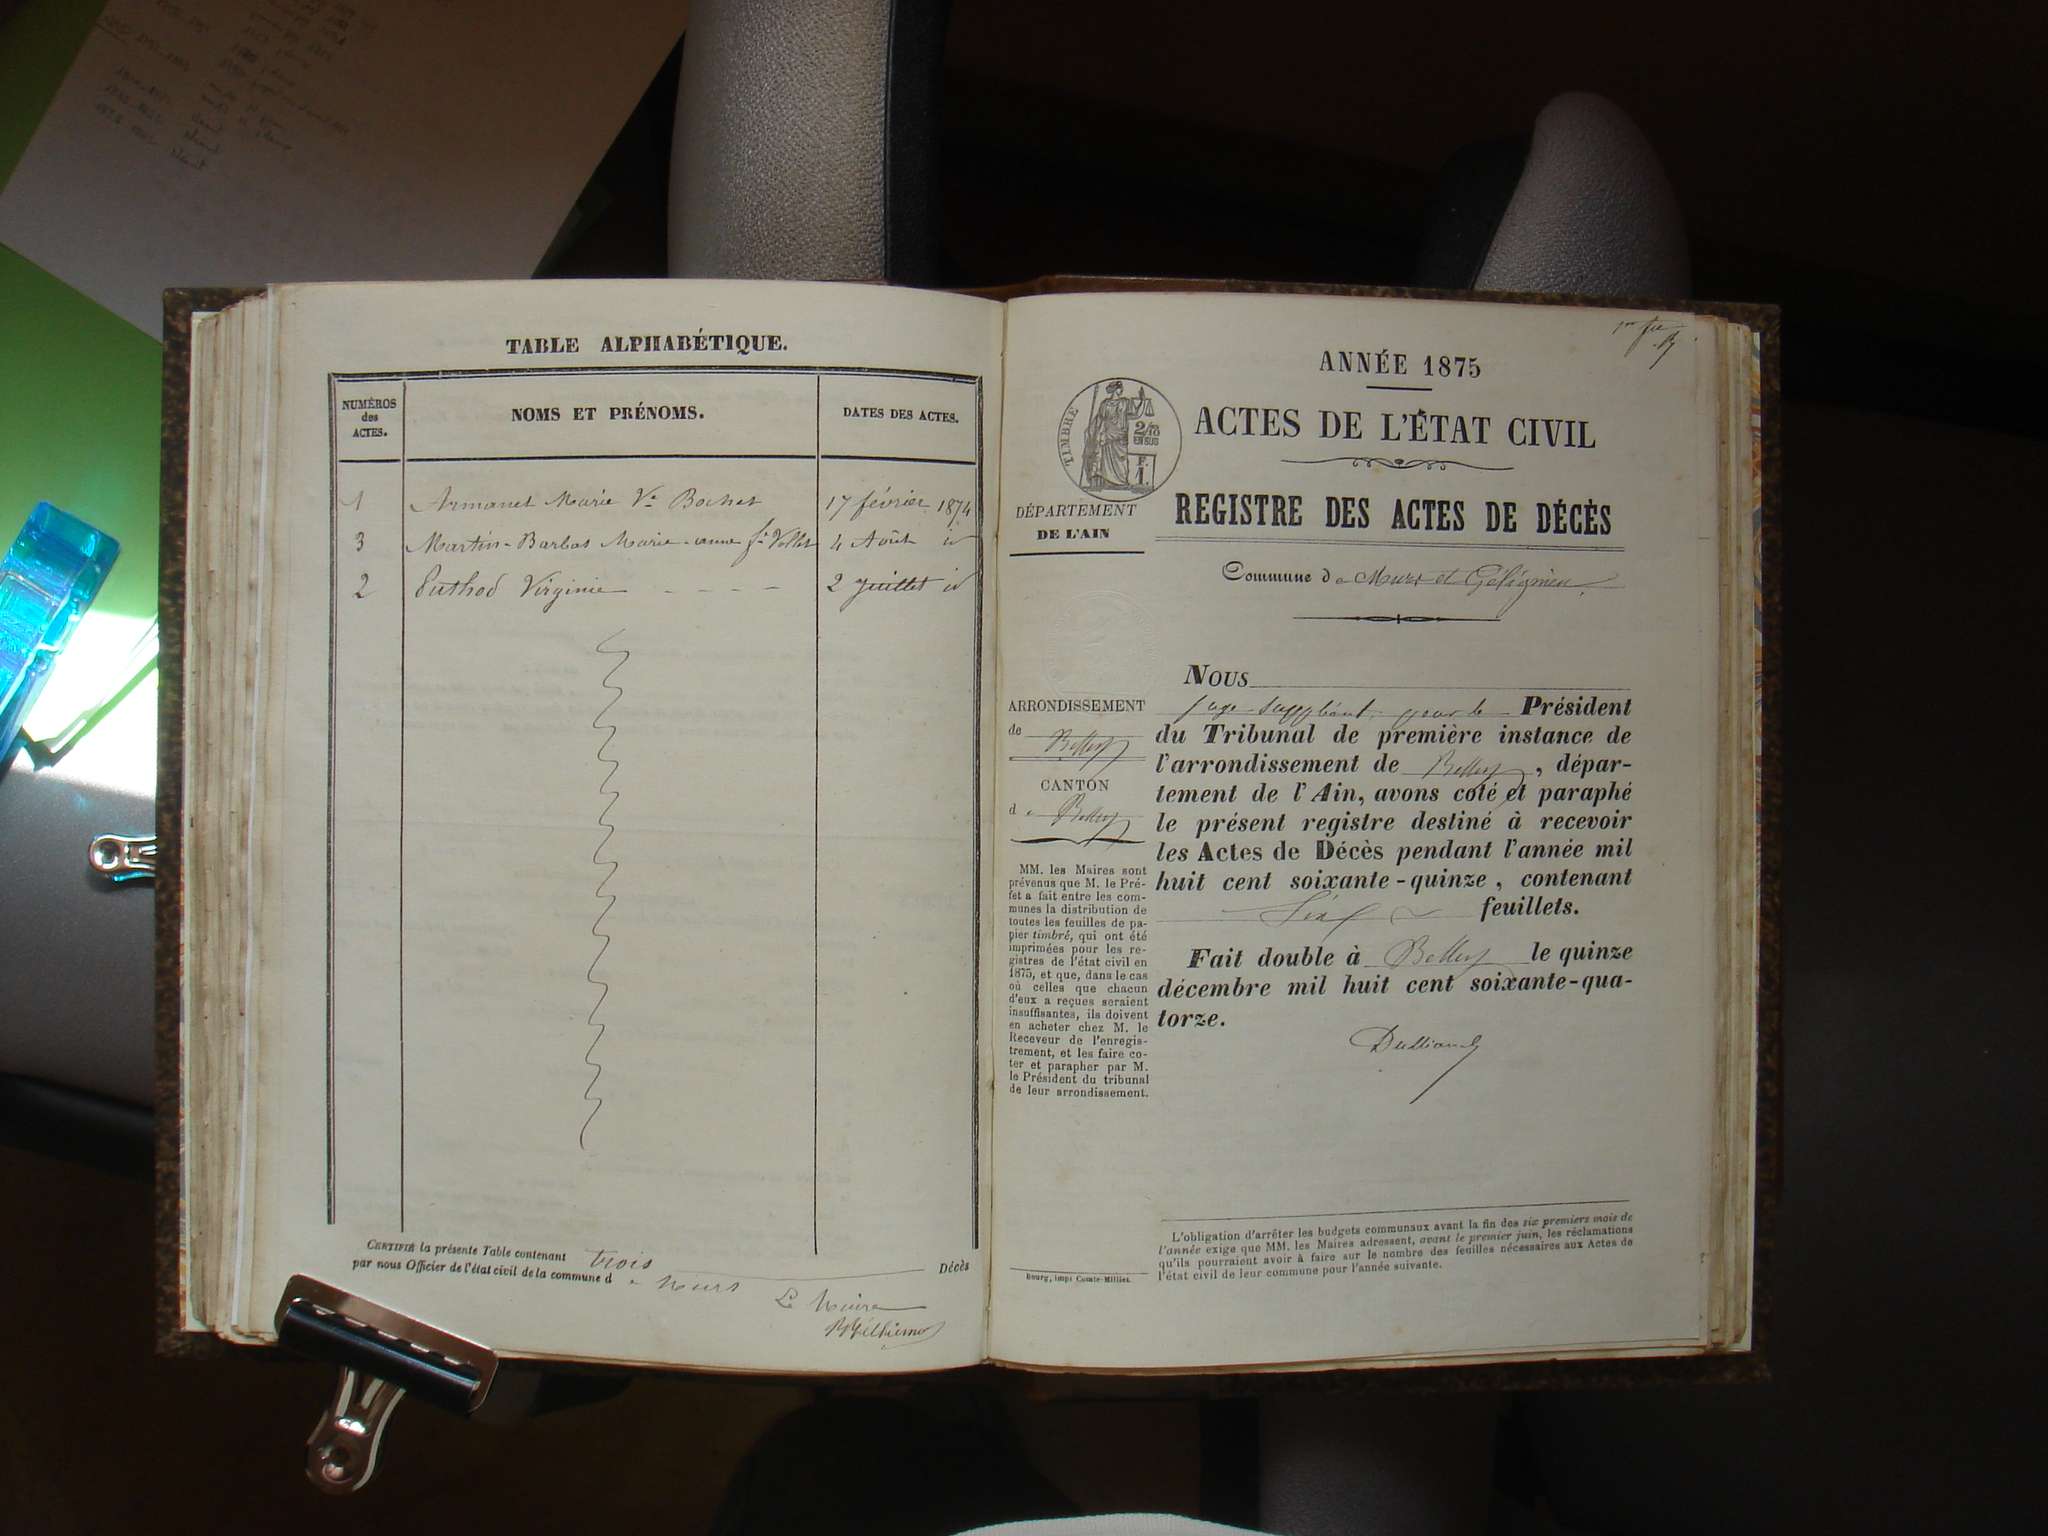 TABLE ALPHABÉTIQUE.
NUMÉROS
des
ACTES.
NOMS ET PRÉNOMS.
DATES DES ACTES.
1 Armanet Marie Ve Bochet 17 février 1874
3 Martin-Barbas Marie-anne fe Vollet 4 Août id
2 Puthod Virginie - - - - 2 Juillet id
CERTIFIÉ la présente Table contenant trois Décès
par nous Officier de l'état civil de la commune de Murs
Le Maire
ANNÉE 1875
ACTES DE L'ÉTAT CIVIL
TIMBRE
2/10
EN SUS
F.
1.
REGISTRE DES ACTES DE DÉCÈS
DÉPARTEMENT
DE L'AIN
Commune de Murs et Gélignieu.
NOUS
juge suppléant, pour le Président
du Tribunal de première instance de
l'arrondissement de Belley, dépar-
tement de l'Ain, avons coté et paraphé
le présent registre destiné à recevoir
les Actes de Décès pendant l'année mil
huit cent soixante-quinze, contenant
Six feuillets.
Fait double à Belley le quinze
décembre mil huit cent soixante-qua-
torze.
ARRONDISSEMENT
de Belley
CANTON
de Belley
MM. les Maires sont
prévenus que M. le Pré-
fet a fait entre les com-
munes la distribution de
toutes les feuilles de pa-
pier timbré, qui ont été
imprimées pour les re-
gistres de l'état civil en
1875, et que, dans le cas
où celles que chacun
d'eux a reçues seraient
insuffisantes, ils doivent
en acheter chez M. le
Receveur de l'enregis-
trement, et les faire co-
ter et parapher par M.
le Président du tribunal
de leur arrondissement.
Bourg, imp. Comte-Milliet.
L'obligation d'arrêter les budgets communaux avant la fin des six premiers mois de
l'année exige que MM. les Maires adressent, avant le premier juin, les réclamations
qu'ils pourraient avoir à faire sur le nombre des feuilles nécessaires aux Actes de
l'état civil de leur commune pour l'année suivante.